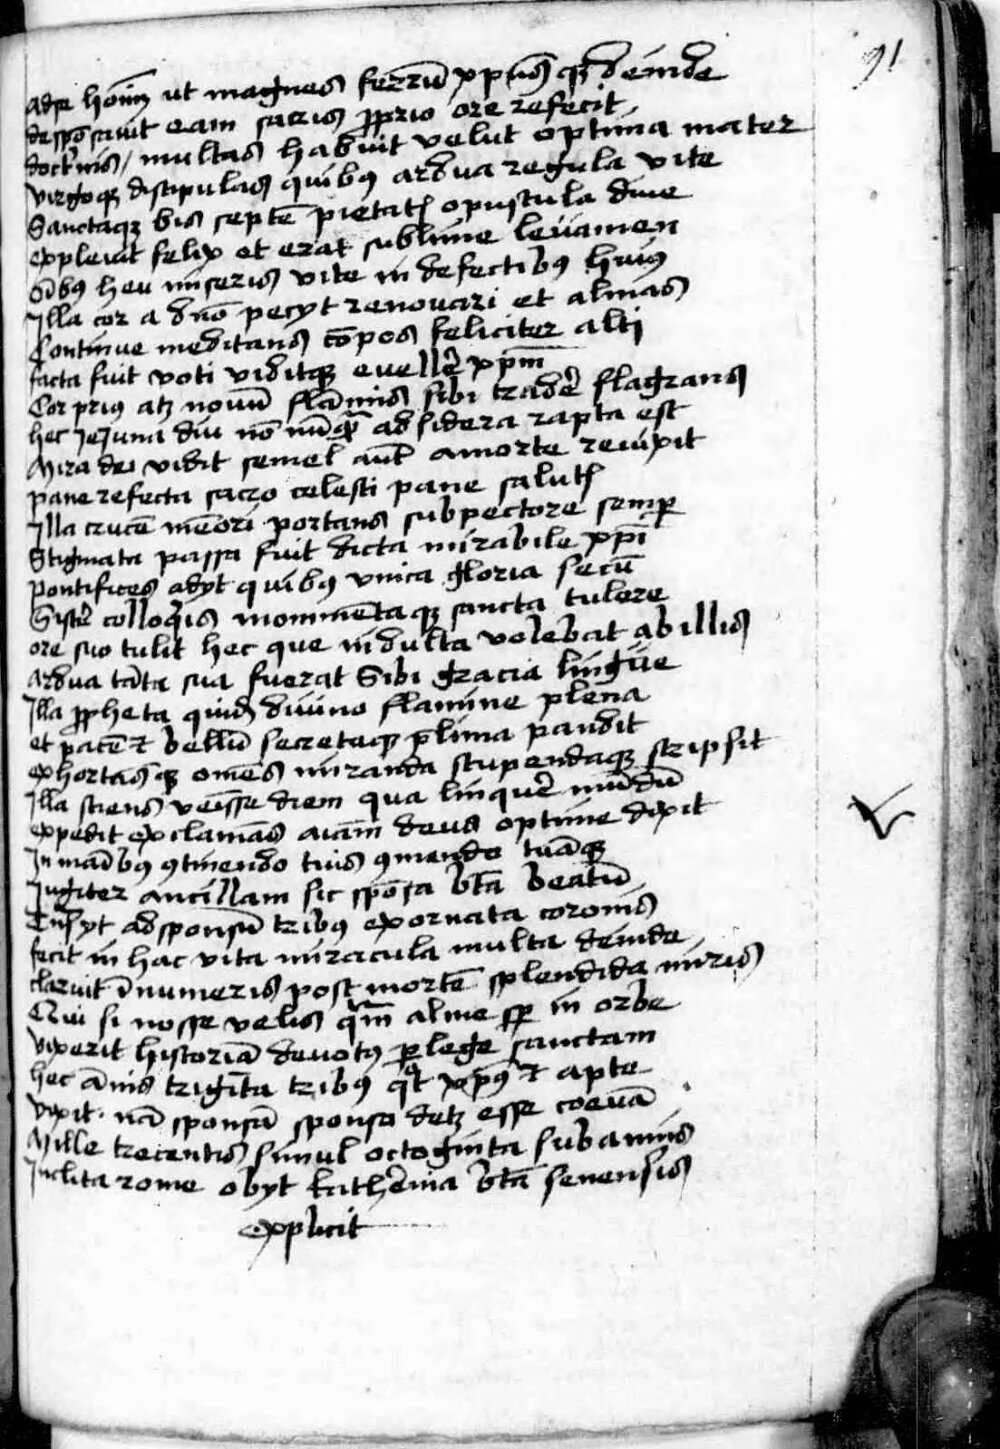 91
Adse hoīm̄ ut magnes ferrū xp̄us qꝫ deinde
despōsavit eam sacris ꝓprio ore refecit
doctͥnis / multas habuit velut optima mater
virgoqꝫ discipulas quibꝰ ardua regula vite
Sanctaqꝫ bis septē pietatꝭ opuscula diue
expleuit felix et erat sublime leuamen
oībꝰ heu miseris vite in defectibꝰ huiꝰ
Illa cor a dn̄o pecyt renovari et almas
Continue meditans cōpos feliciter alti
facta fuit voti viditqꝫ euellē xp̄m
Cor priꝰ atqꝫ nouū flāmis sibi tradē flagrans
hec Jejuna diu nō nūꝙ̄ ad sidera rapta est
Mira dei vidit semel aūt a morte reuixit
pane refecta sacro celesti pane salutꝭ
Illa crucē mēori portans sub pectore semꝑ
Stigmata passa fuit dicta mirabile xp̄i
pontifices adyt quibꝰ vnica gloria secū
Sistē colloqͥis monimētaqꝫ sancta tulere
ore suo tulit hec que indulta volebat ab illis
Ardua tāta sua fuerat sibi gracia lingue
Illa ꝓpheta quidē diuino flamine plena
et pacē ⁊ bellū secretaqꝫ plīma pandit
exhortās qꝫ omēs miranda stupendaqꝫ scripsit
Illa sciens veīsse diem qua linquē mūdū
expedit exclamās aīam deus optime dixit
In maībꝰ ꝯtinendo tuis ꝯmendo tuāqꝫ
Jugiter ancillam sic spōsa bt̄a beatū
Trāsyt ad sponsū tribꝰ exornata coronis
fecit in hac vita miracula multa deinde
claruit īnumeris post mortē splendida miris
Qui si nosse velis qͣm alme sꝑ in orbe
vixerit historiā deuotꝰ ꝑlege sanctam
hec ānis trigīta tribꝰ qͦt xp̄ꝰ ⁊ apte
vixit nā sponsā sponso detꝫ esse coeuā
Mille trecentis simul octoginta sub annis
Inclita rome obyt katherina bt̄a senensis
explicit